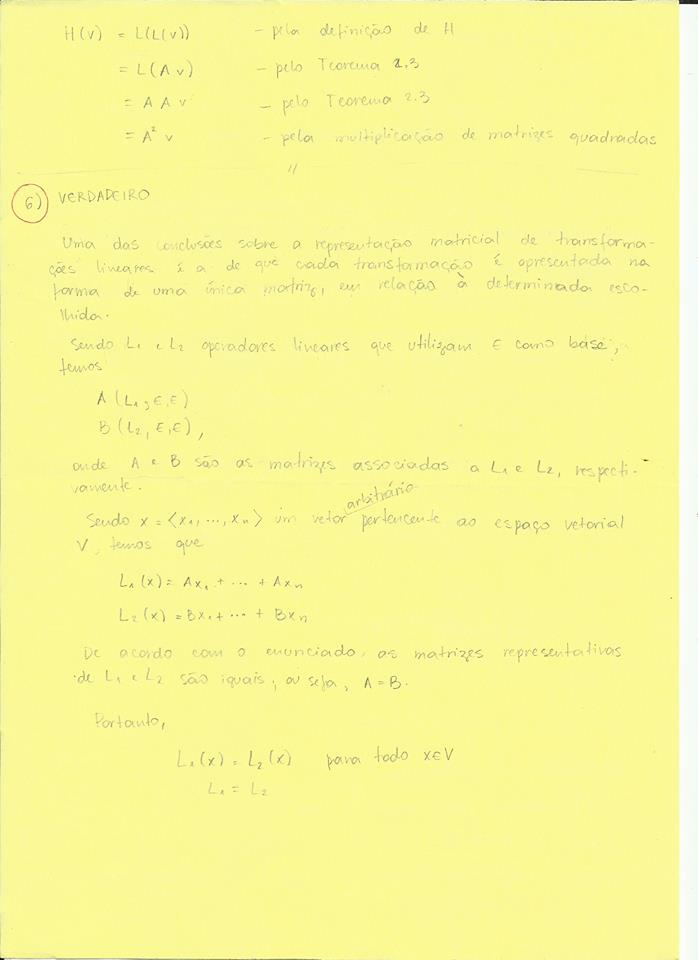 H(v) = L(L(v)) - pela definição de H
= L(A v) - pelo Teorema 2.3
= A A v - pelo Teorema 2.3
= A² v - pela multiplicação de matrizes quadradas
//
6) VERDADEIRO
Uma das conclusões sobre a representação matricial de transforma-
ções lineares é a de que cada transformação é apresentada na
forma de uma única matriz, em relação à determinada esco-
lhida.
Sendo L₁ e L₂ operadores lineares que utilizam E como base,
temos
A (L₁, E, E)
B (L₂, E, E),
onde A e B são as matrizes associadas a L₁ e L₂, respecti-
vamente.
Sendo x = <x₁, ..., xₙ> um vetor arbitrário pertencente ao espaço vetorial
V, temos que
L₁(x) = Ax₁ + ... + Axₙ
L₂(x) = Bx₁ + ... + Bxₙ
De acordo com o enunciado, as matrizes representativas
de L₁ e L₂ são iguais, ou seja, A = B.
Portanto,
L₁(x) = L₂(x) para todo x∈V
L₁ = L₂